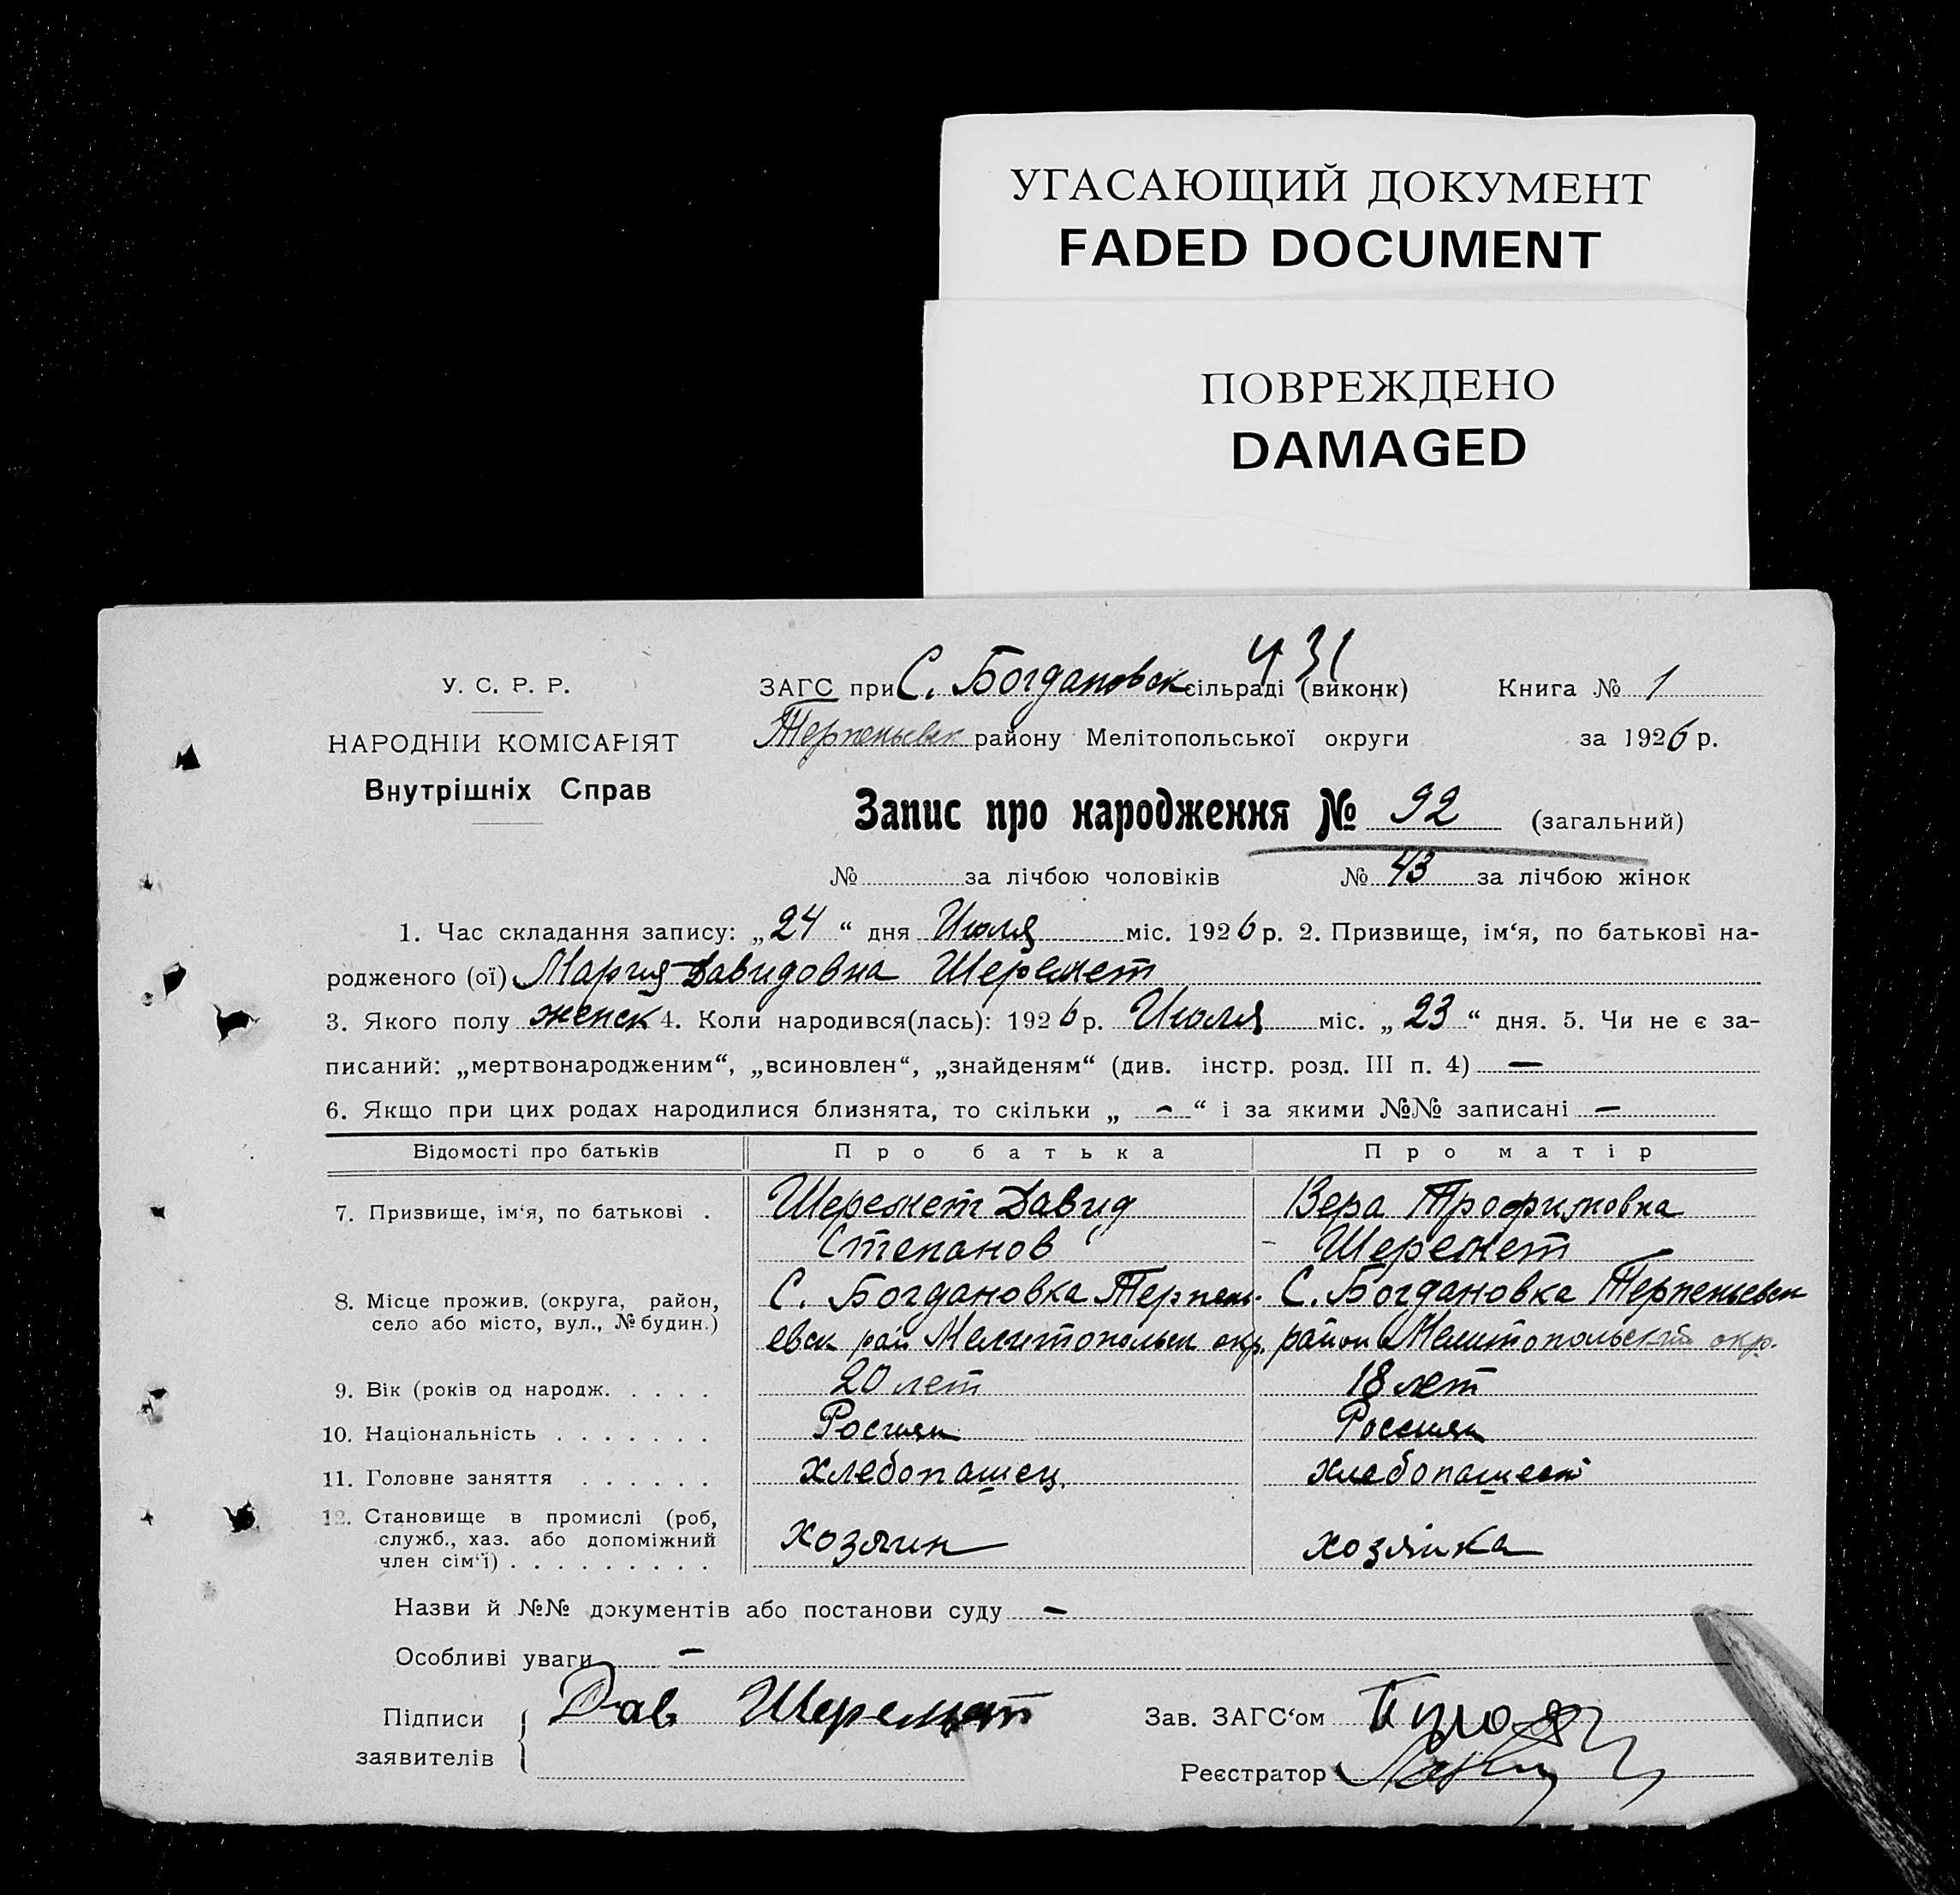 УГАСАЮЩИЙ ДОКУМЕНТ
FADED DOCUMENT
ПОВРЕЖДЕНО
DAMAGED
431
У. С. Р. Р.
НАРОДНІЙ КОМІСАРІЯТ
Внутрішніх Справ
ЗАГС при С. Богдановск сільраді (виконк) Книга № 1
Терпеньевск району Мелітопольської округи за 1926 р.
Запис про народження № 92 (загальний)
№ за лічбою чоловіків № 43 за лічбою жінок
1. Час складання запису: „24“ дня Июля міс. 1926 р. 2. Призвище, ім‘я, по батькові на-
родженого (ої) Мария Давидовна Шеремет
3. Якого полу женск 4. Коли народився(лась): 1926 р. Июля міс. „23“ дня. 5. Чи не є за-
писаний: „мертвонародженим“, „всиновлен“, „знайденям“ (див. інстр. розд. III п. 4) —
6. Якщо при цих родах народилися близнята, то скільки „ - “ і за якими №№ записані —
Відомості про батьків Про батька Про матір
7. Призвище, ім‘я, по батькові . Шеремет Давид Вера Трофимовна
Степанов - Шеремет
8. Місце прожив. (округа, район, село або місто, вул., № будин.) С. Богдановка Терпень- С. Богдановка Терпеньевск
евск рай Мелитопольск окр. район Мелитопольский окр.
9. Вік (років од народж. . . . . 20 лет 18 лет
10. Національність . . . . . . . Росиян Россиян
11. Головне заняття . . . . . . хлебопашец. хлебопашест
12. Становище в промислі (роб, служб., хаз. або допоміжний член сім‘ї) . . . . . . . . . хозяин хозяйка
Назви й №№ документів або постанови суду —
Особливі уваги —
Підписи заявителів Дав Шеремет
Зав. ЗАГС‘ом
Реєстратор